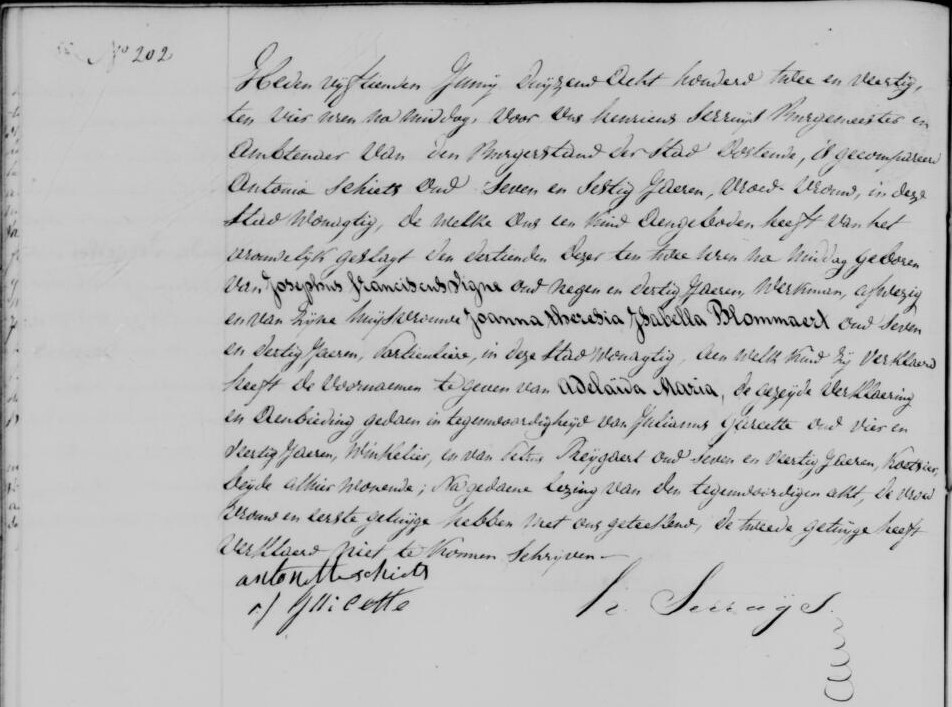 N° 202
Heden vyftienden Juny duyzend Acht honderd twee en veertig,
ten vier uren na middag, voor Ons henricus Serruys Burgemeester en
Ambtenaer van den Burgerstand der Stad Oostende, is gecompareerd
Antonia Schiets oud Seven en Sestig Jaeren, vroed-vrouw, in deze
Stad Wonagtig, de welke Ons een Kind Aengeboden heeft van het
vrouwelyk geslagt den dertienden dezer ten twee uren na middag geboren
van Josephus franciscus Vigne oud negen en dertig Jaeren, Werkman, afwezig
en van zyne huysvrouwe Joanna theresia Ysabella Blommaert oud Seven
en dertig Jaeren, particuliere, in deze Stad Wonagtig, Aen welk Kind zy verklaerd
heeft de Voornaemen te geven van Adelaïda Maria, de gezeyde Verklaering
en Aenbieding gedaen in tegenwoordigheyd van Julianus oud vier en
veertig Jaeren, Winkelier, en van oud Seven en veertig Jaeren, Koetsier,
beyde alhier wonende; Na gedaene Lezing van den tegenwoordigen akt, de vroed
Vrouw en eerste getuyge hebben met ons geteekend, de tweede getuyge heeft
Verklaerd niet te konnen Schrijven.—
antonette schiets
H. Serruys.